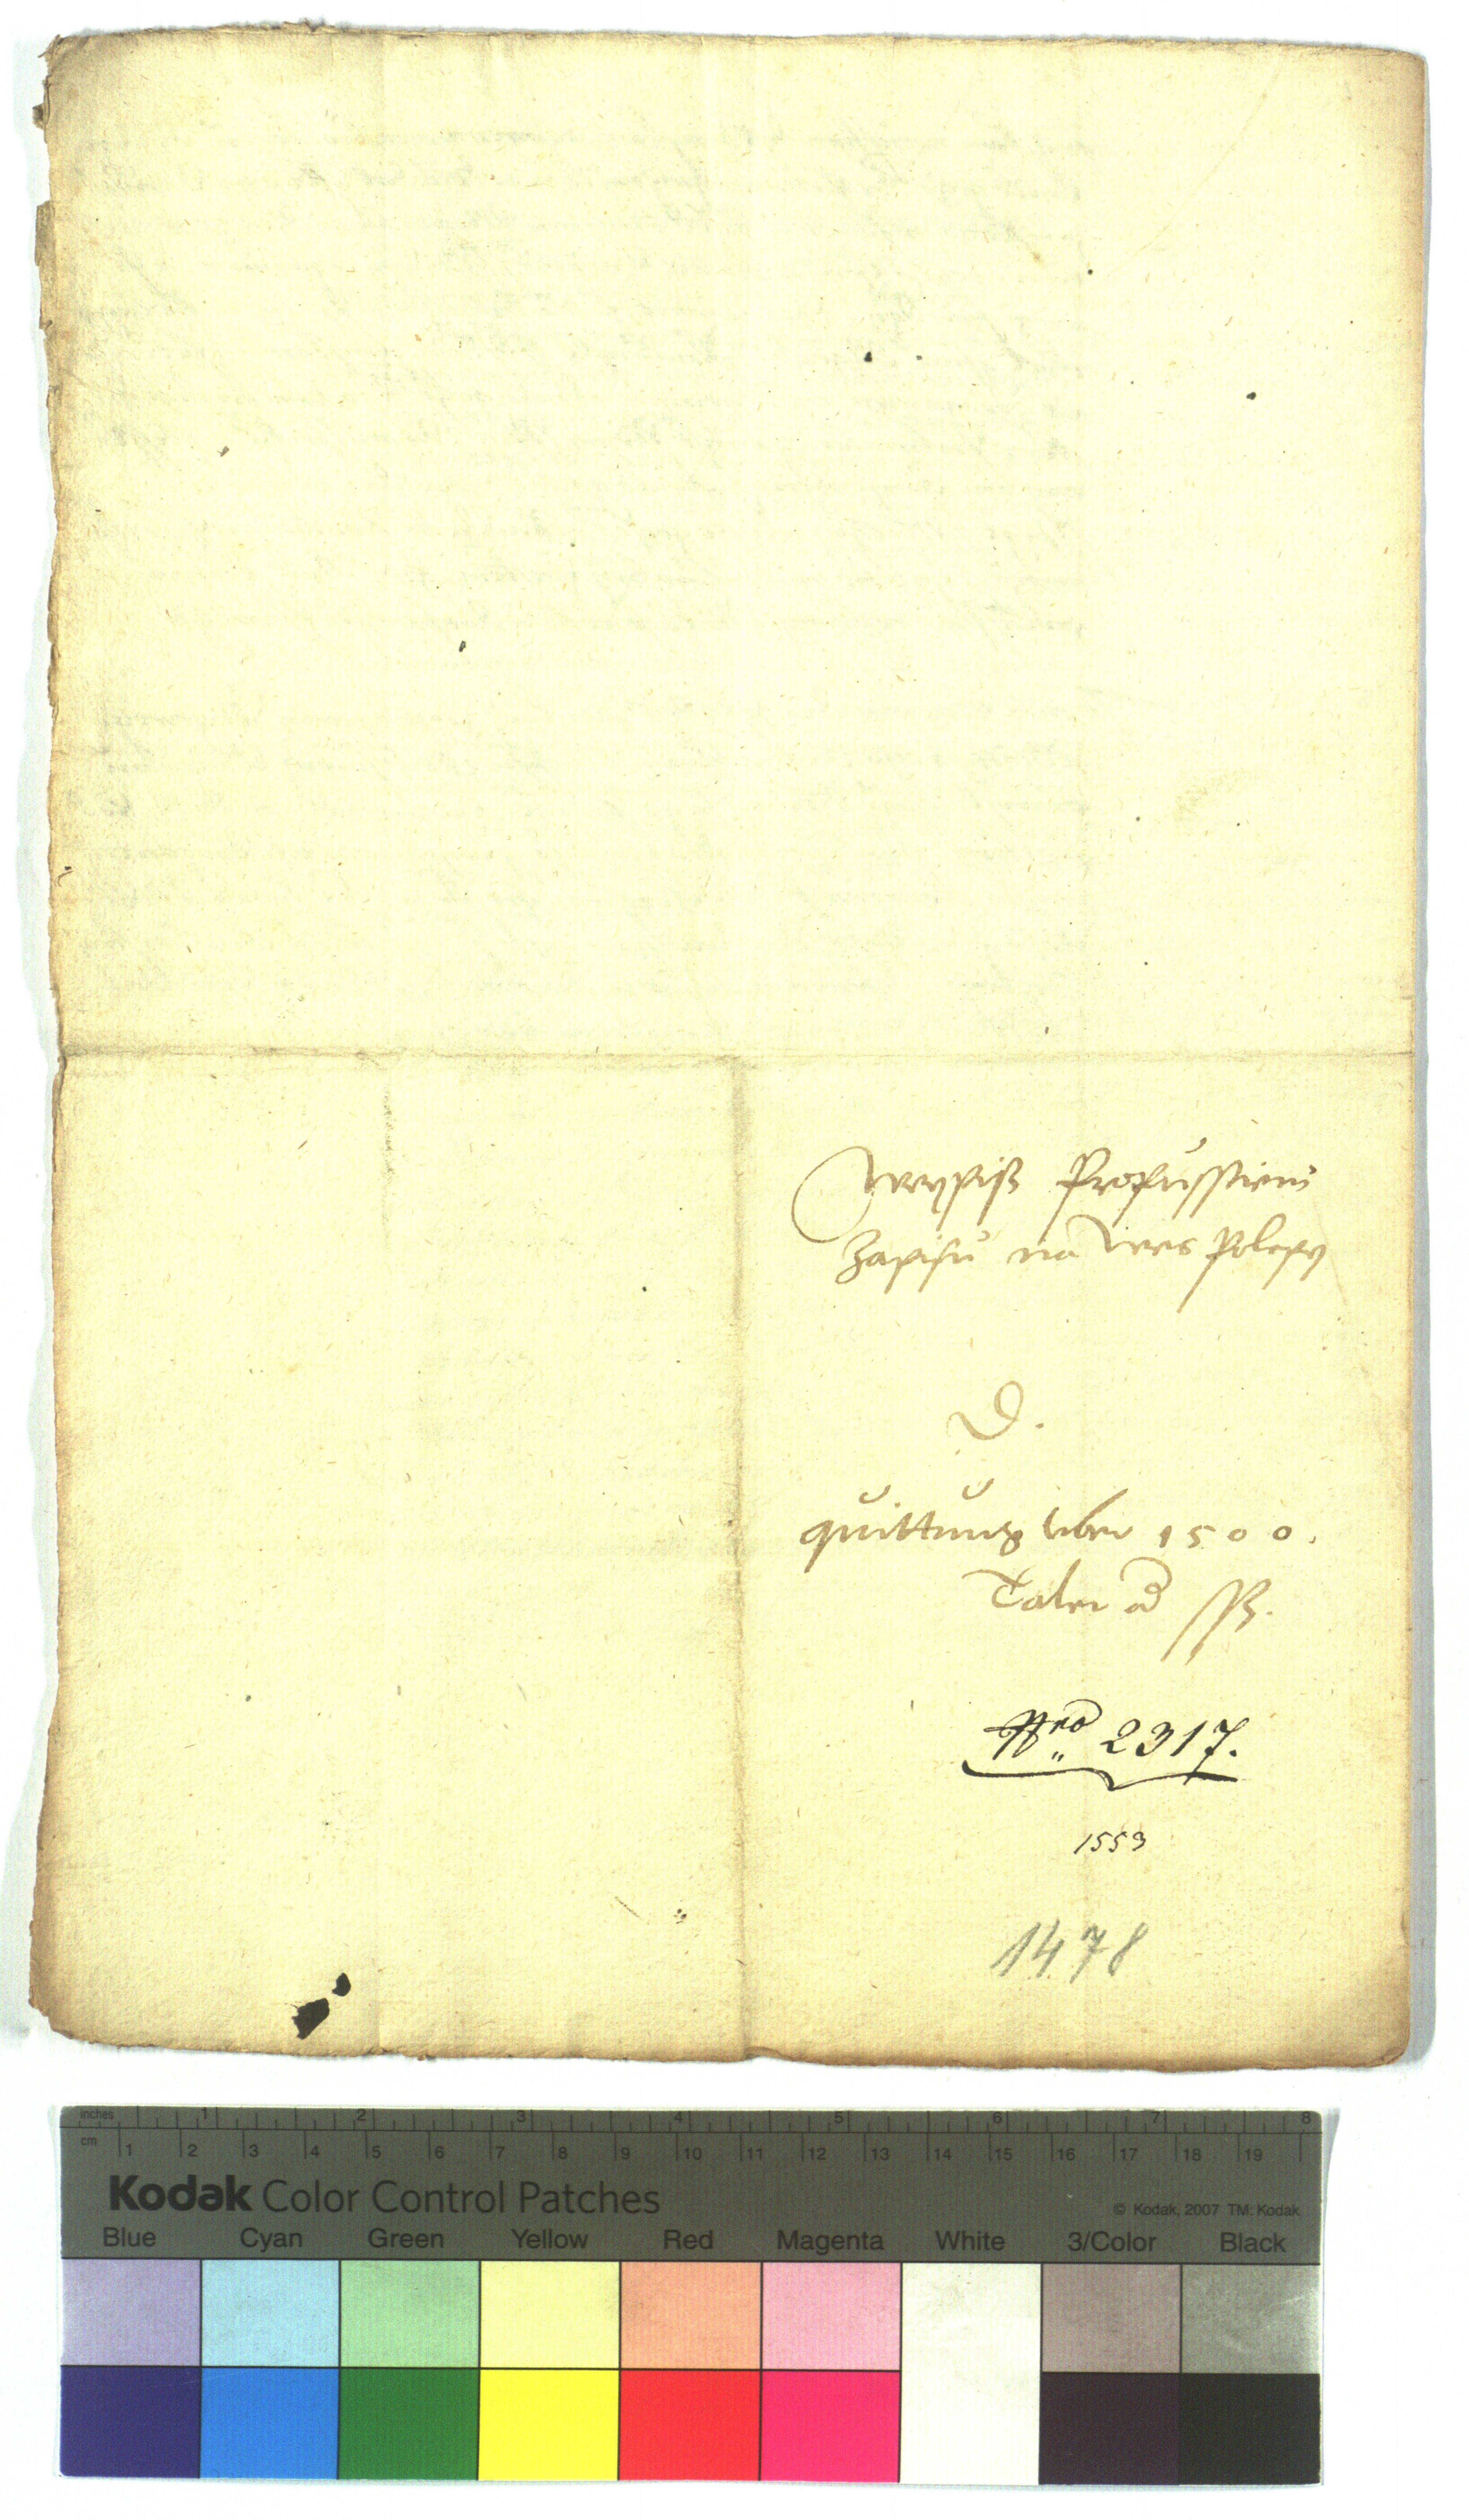 Weypiß Propusstieni
Zapisu na Wes Polepy
D.
quittung uber 1500.
Taler ad
Nro 2317.
1553
1478
inches 1 2 3 4 5 6 7 8
cm 1 2 3 4 5 6 7 8 9 10 11 12 13 14 15 16 17 18 19
Kodak Color Control Patches
© Kodak, 2007 TM: Kodak
Blue Cyan Green Yellow Red Magenta White 3/Color Black